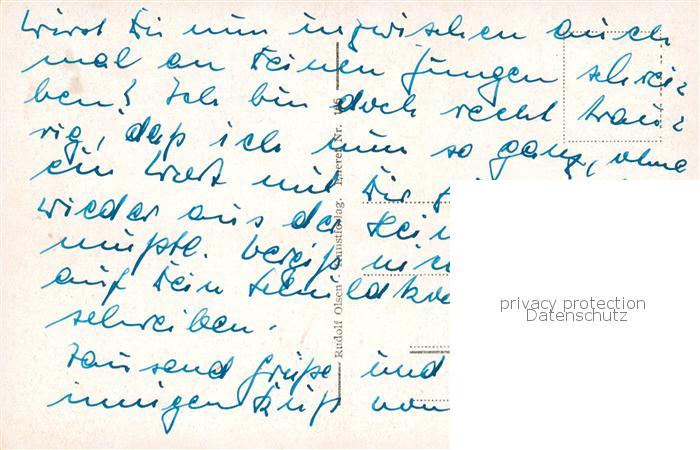 wirst Du nun inzwischen auch
mal an Deinen Jungen schrei=
ben? Ich bin doch recht trau=
rig, daß ich nun so ganz, ohne
ein Wort mit Dir
wieder aus der
mußte. Vergiß nich
auf Dein
schreiben.
Tausend Grüße und
innigen Kuß von
Rudolf Olsen - Kunstverlag. Nr. 146
privacy protection
Datenschutz